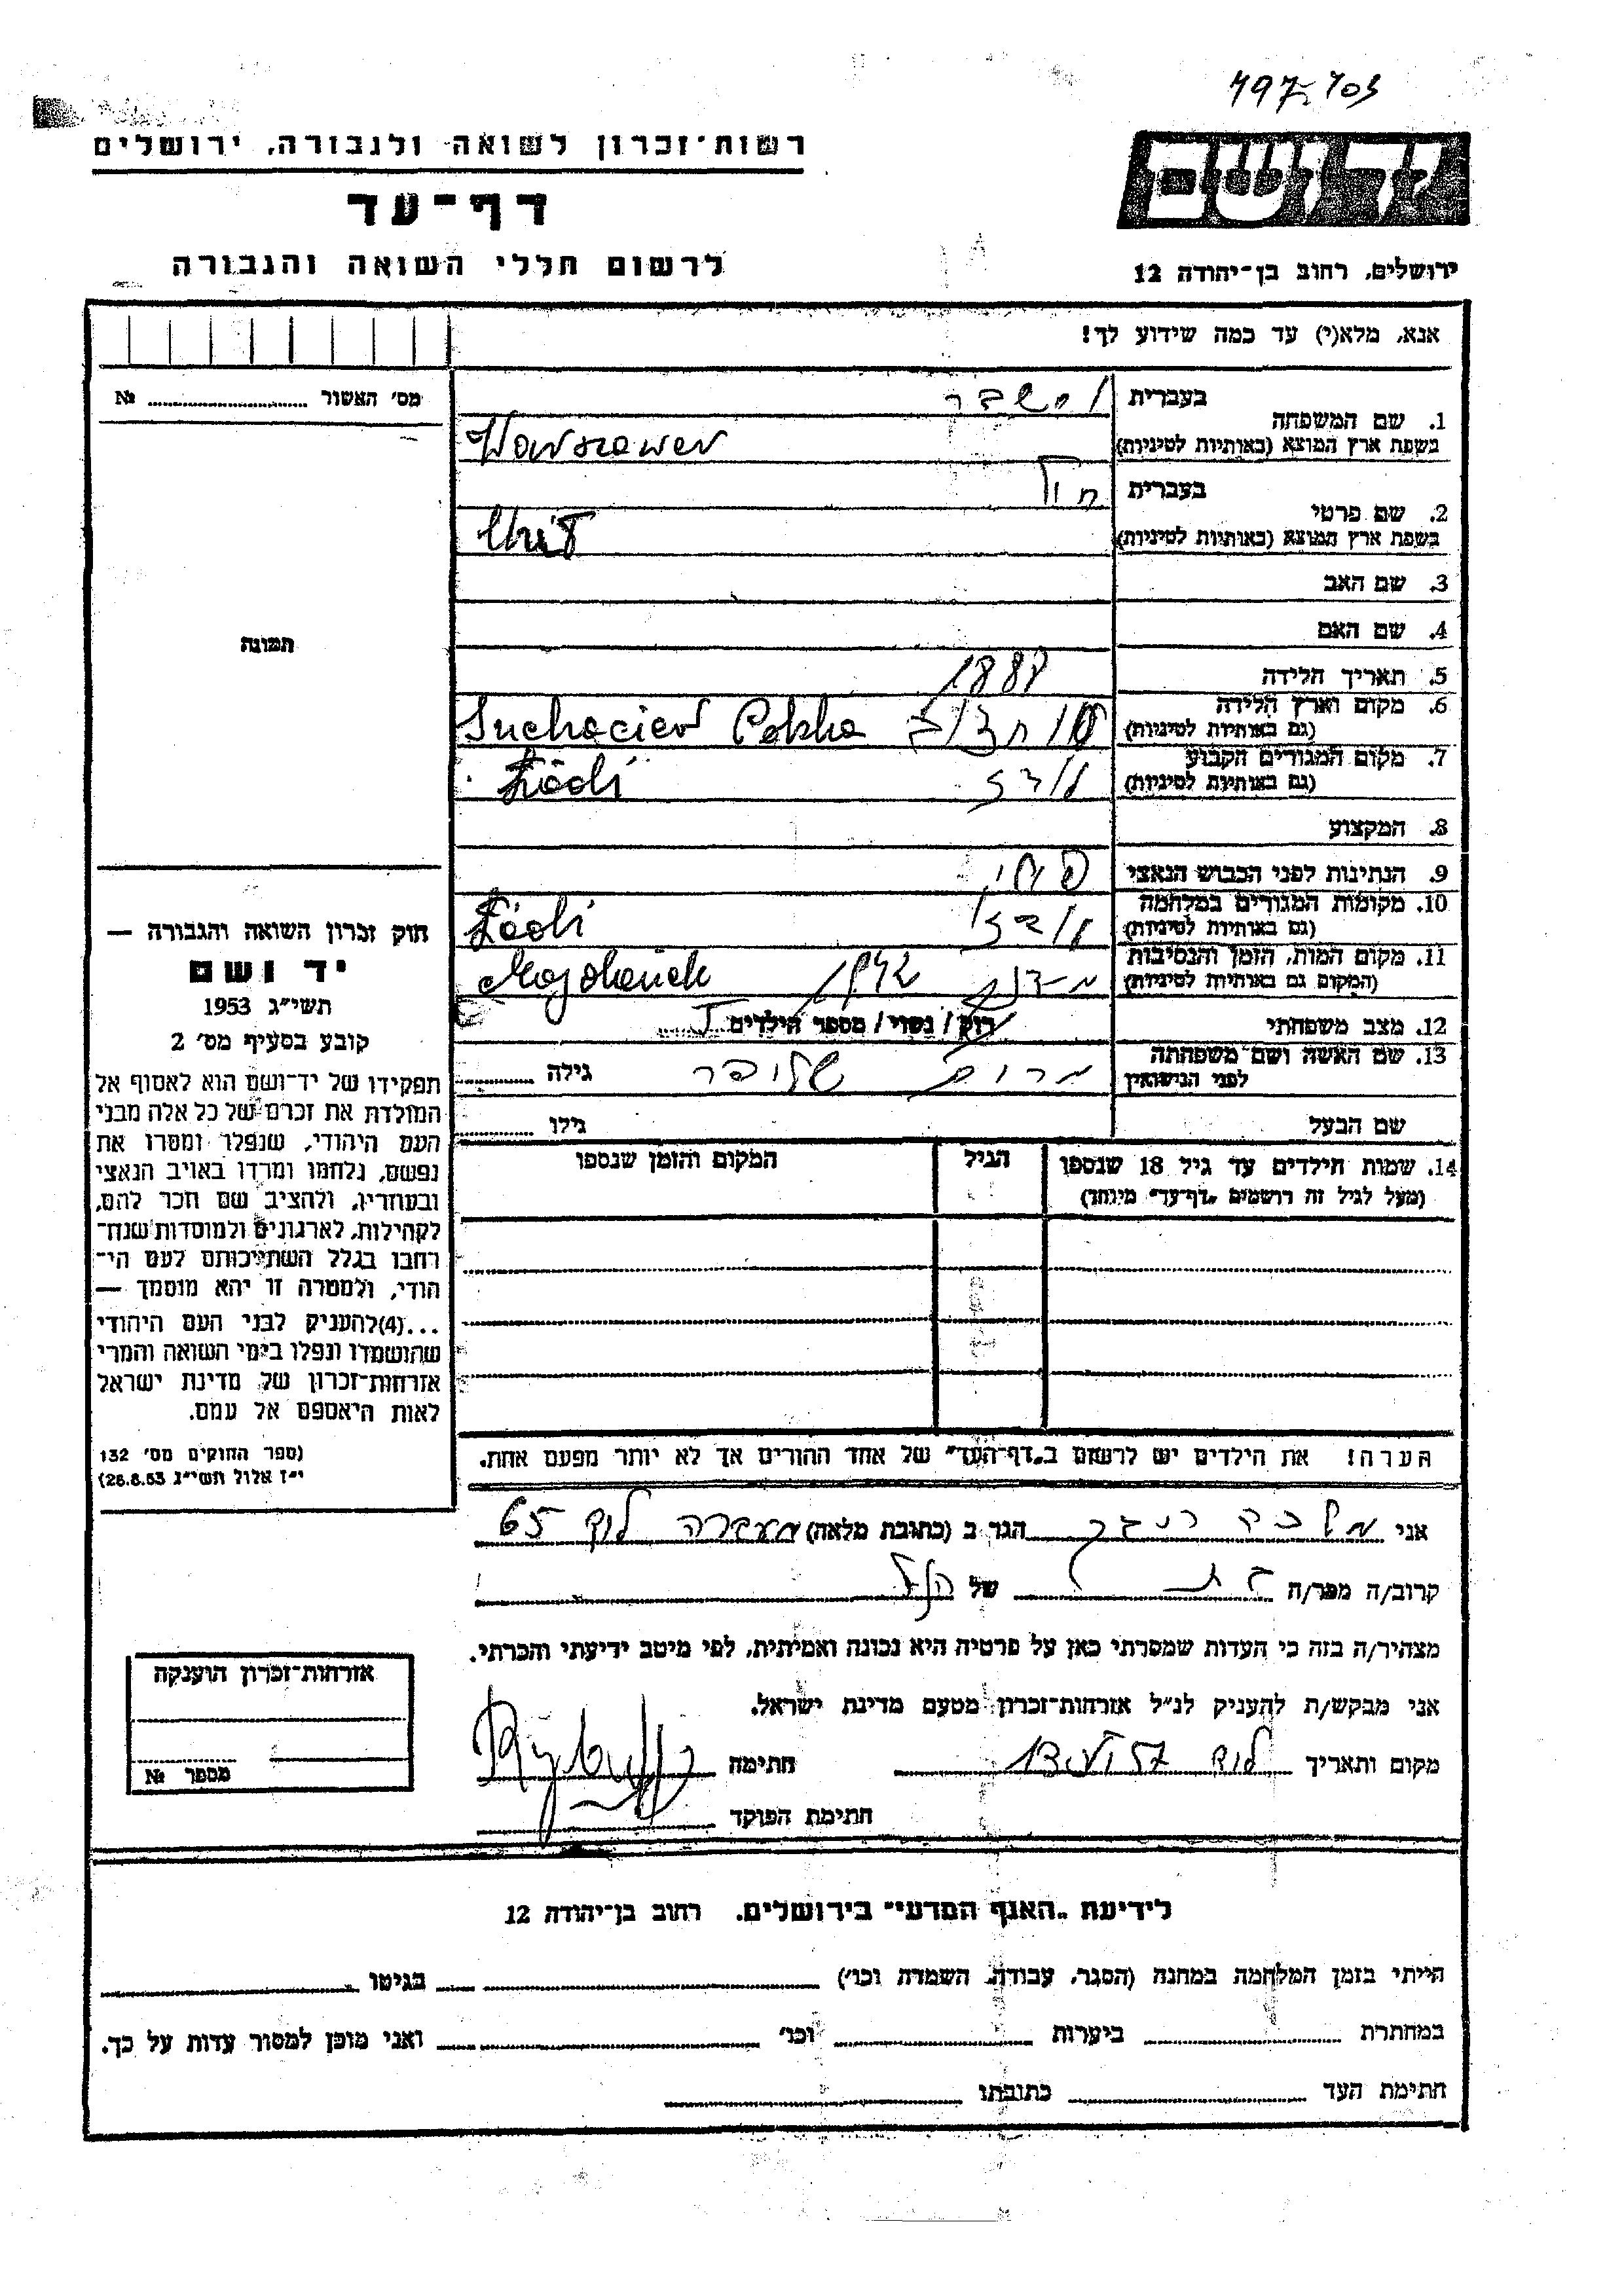 497-403
רשות-זכרון לשואה ולגבורה, ירושלים
יד ושם
דף-עד
לרשום חללי השואה והגבורה
ירושלים, רחוב בן-יהודה 12
אנא, מלא(י) עד כמה שידוע לך!
מס' האשור № 
1. שם המשפחה
בעברית
בשפת ארץ המוצא (באותיות לטיניות) Warszawer
2. שם פרטי
בעברית
בשפת ארץ המוצא (באותיות לטיניות)
3. שם האב
4. שם האם
תמונה
5. תאריך הלידה 1887
6. מקום וארץ הלידה
(גם באותיות לטיניות) Suchaciew Polska
7. מקום המגורים הקבוע
(גם באותיות לטיניות) לודז Łódź
8. המקצוע
9. הנתינות לפני הכבוש הנאצי
10. מקומות המגורים במלחמה
(גם באותיות לטיניות) לודז Łódź
11. מקום המות, הזמן והנסיבות
(המקום גם באותיות לטיניות) 1942 Majdanek
12. מצב משפחתי רוק / נשוי / מספר הילדים
13. שם האשה ושם משפחתה
לפני הנישואין מרים גילה
שם הבעל גילו
14. שמות הילדים עד גיל 18 שנספו
(מעל לגיל זה רושמים „דף-עד" מיוחד)
הגיל
המקום והזמן שנספו
חוק זכרון השואה והגבורה —
יד ושם
תשי"ג 1953
קובע בסעיף מס' 2
תפקידו של יד-ושם הוא לאסוף אל
המולדת את זכרם של כל אלה מבני
העם היהודי, שנפלו ומסרו את
נפשם, נלחמו ומרדו באויב הנאצי
ובעוזריו, ולהציב שם וזכר להם,
לקהילות, לארגונים ולמוסדות שנח-
רבו בגלל השתייכותם לעם הי-
הודי, ולמטרה זו יהא מוסמך —
...(4)להעניק לבני העם היהודי
שהושמדו ונפלו בימי השואה והמרי
אזרחות-זכרון של מדינת ישראל
לאות היאספם אל עמם.
(ספר החוקים מס' 132
י"ז אלול תשי"ג 26.8.53)
הערה! את הילדים יש לרשום ב„דף-העד" של אחד ההורים אך לא יותר מפעם אחת.
אני הגר ב (כתובת מלאה) מעברה לוד 65
קרוב/ה מכר/ה בת של הנ"ל
מצהיר/ה בזה כי העדות שמסרתי כאן על פרטיה היא נכונה ואמיתית, לפי מיטב ידיעתי והכרתי.
אני מבקש/ת להעניק לנ"ל אזרחות-זכרון מטעם מדינת ישראל.
מקום ותאריך לוד חתימה
חתימת הפוקד
אזרחות-זכרון הוענקה
מספר №
לידיעת „האגף המדעי" בירושלים, רחוב בן-יהודה 12
הייתי בזמן המלחמה במחנה (הסגר, עבודה, השמדה וכו') בגיטו
במחתרת ביערות וכו' ואני מוכן למסור עדות על כך.
חתימת העד כתובתו